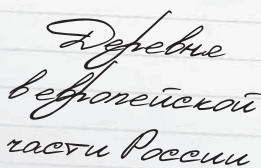 Деревня
в европейской
части России